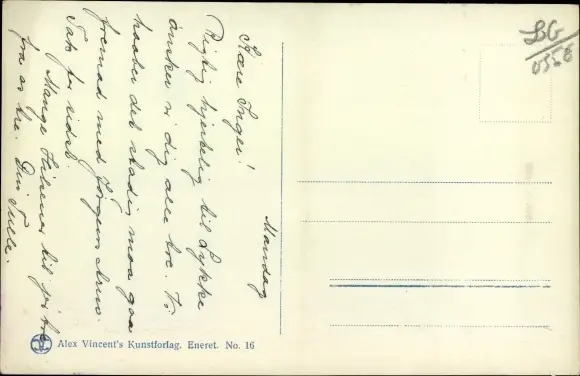 Mandag
Kære Inger!
Rigtig hjertelig til Lykke
ønsker vi dig alle tre. Vi
haaber det stadig maa gaa
fremad med Jørgen Arno.
Tak for sidst.
Mange Hilsener til
fra os tre. Din Tulle.
Alex Vincent's Kunstforlag. Eneret. No. 16
BG
0356